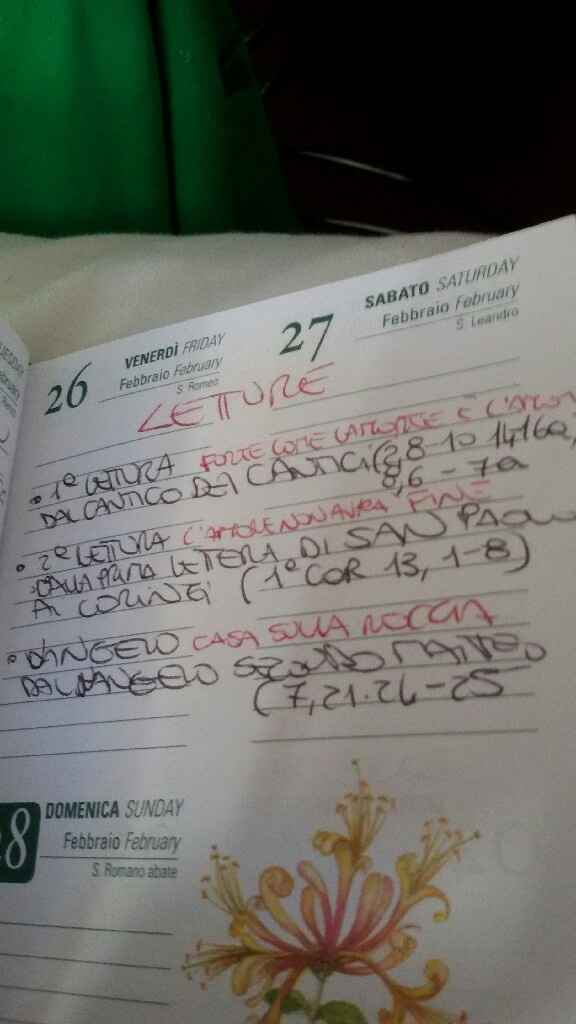 26
VENERDÌ FRIDAY
Febbraio February
S. Romeo
27
SABATO SATURDAY
Febbraio February
S. Leandro
LETTURE
• 1ª LETTURA FORTE COME LA MORTE È L'AMOR
DAL CANTICO DEI CANTICI (2,8-10 14,16a,
8,6-7a
• 2ª LETTURA L'AMORE NON AVRÀ FINE
DALLA PRIMA LETTERA DI SAN PAOLO
AI CORINZI (1ª COR 13, 1-8)
• VANGELO CASA SULLA ROCCIA
DAL VANGELO SECONDO MATTEO
(7,21.24-25
8
DOMENICA SUNDAY
Febbraio February
S. Romano abate